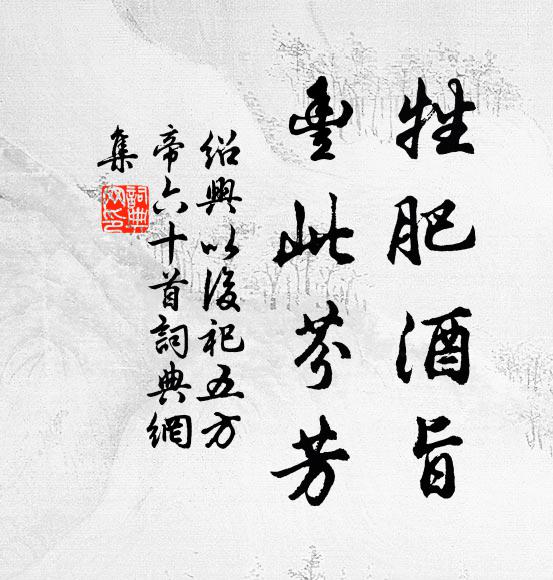 牲肥酒旨
豊此芬芳
紹興以後祀五方
帝六十首詞典網
集
詞典網印